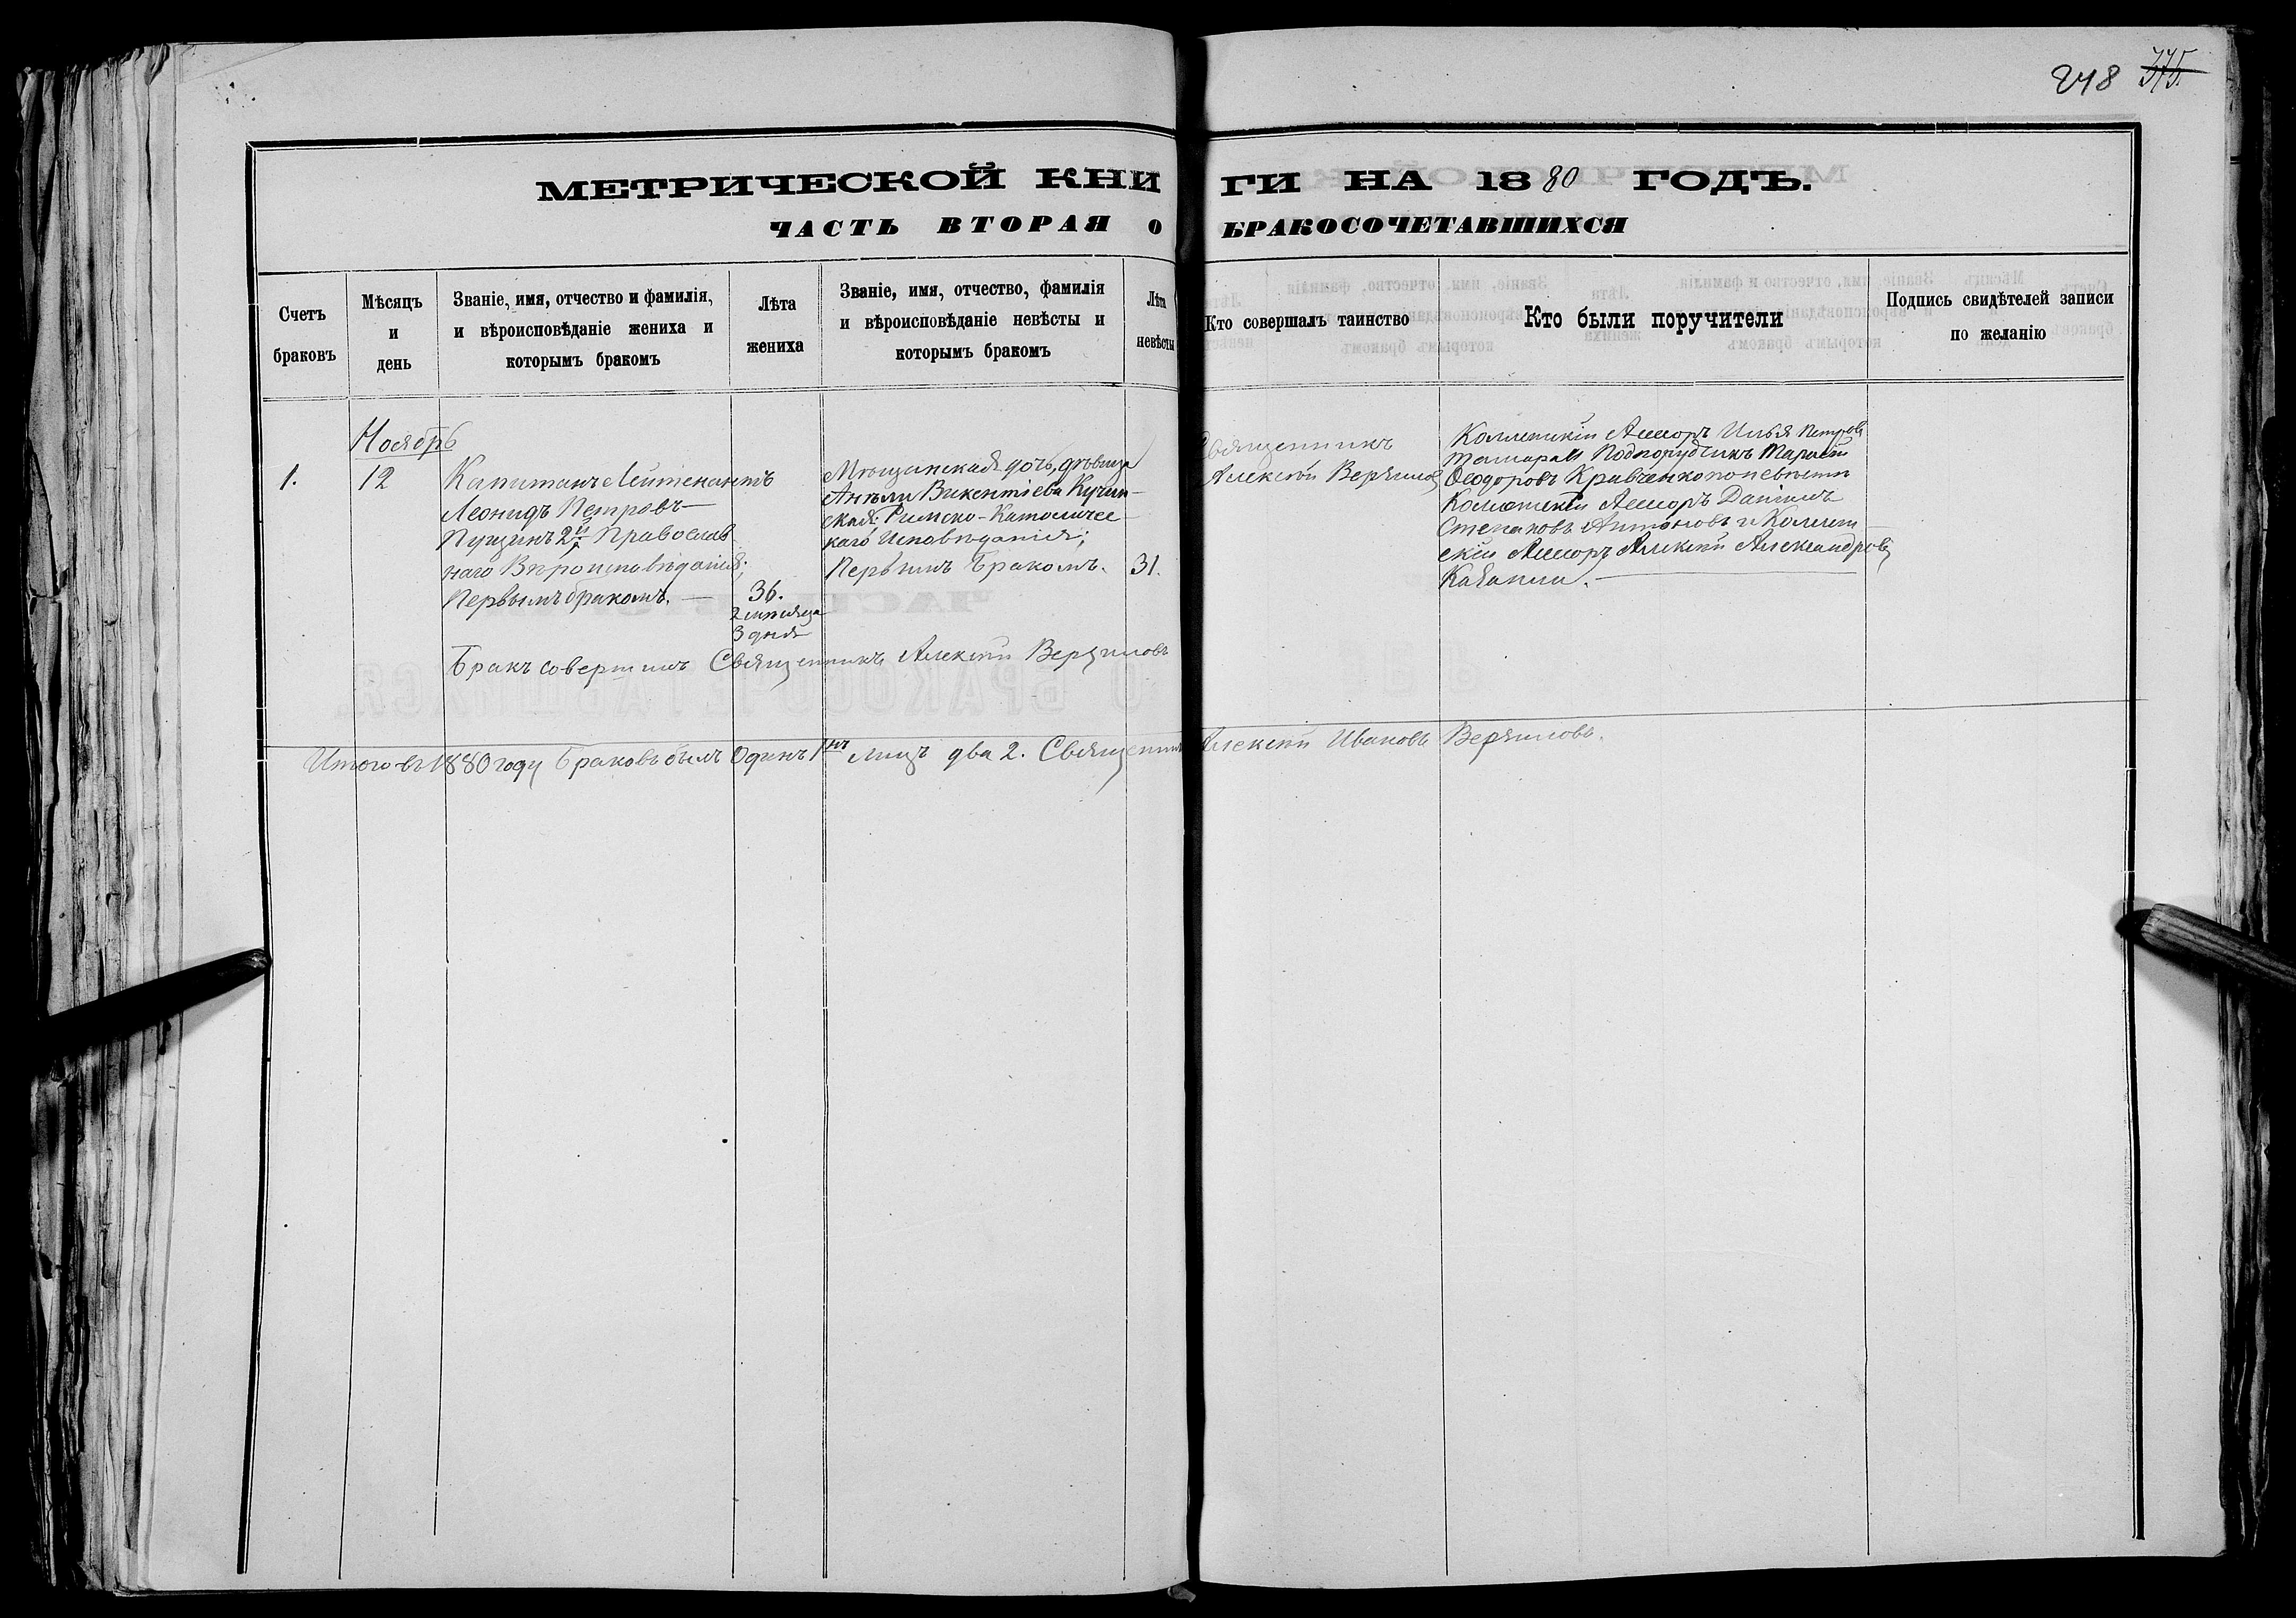 248 375.
МЕТРИЧЕСКОЙ КНИГИ НА 1880 ГОДЪ.
ЧАСТЬ ВТОРАЯ О БРАКОСОЧЕТАВШИХСЯ
Счетъ
браковъ
Мѣсяцъ
и
день
Званіе, имя, отчество и фамилія,
и вѣроисповѣданіе жениха и
которымъ бракомъ
Лѣта
жениха
Званіе, имя, отчество, фамилія
и вѣроисповѣданіе невѣсты и
которымъ бракомъ
Лѣта
невѣсты
Кто совершалъ таинство
Кто были поручители
Подпись свидѣтелей записи
по желанію
Ноябрь
1.
12
Капитанъ Лейтенантъ
Леонидъ Петровъ
Пущинъ 2й Православ
наго Вѣроисповѣданія;
Первымъ бракомъ.
36.
2 мѣсяца
3 дня
Мѣщанская дочь, дѣвица
Анѣли Викентіева Кучин-
ская Римско-Католичес
каго Исповѣданія;
Первымъ Бракомъ.
31.
Священникъ
Алексѣй Верзиловъ
Коллежскій Асессоръ Илья Петровъ
Подпоручикъ Тарасій
Ѳеодоровъ Кравченко по невѣстѣ
Коллежскій Асессоръ Даніилъ
Степановъ Антоновъ и Коллеж
скій Асессоръ Алексѣй Александровъ
Бракъ совершилъ Священникъ Алексѣй Верзиловъ
Итого въ 1880 году Браковъ былъ Одинъ 1нъ лицъ два 2. Священникъ Алексѣй Ивановъ Верзиловъ.